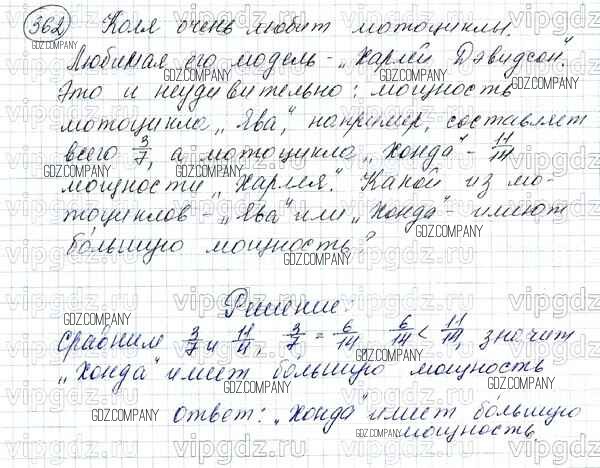 362 Коля очень любит мотоциклы.
Любимая его модель - „Харлей Дэвидсон".
Это и неудивительно: мощность
мотоцикла „Ява", например, составляет
всего 3/7, а мотоцикла „Хонда" - 11/14
мощности „Харлея". Какой из мо-
тоциклов - „Ява" или „Хонда" - имеют
бо́льшую мощность?
Решение:
Сравним 3/7 и 11/14, 3/7 = 6/14 6/14 < 11/14, значит
„Хонда" имеет большую мощность
ответ: „Хонда" имеет бо́льшую
мощность.